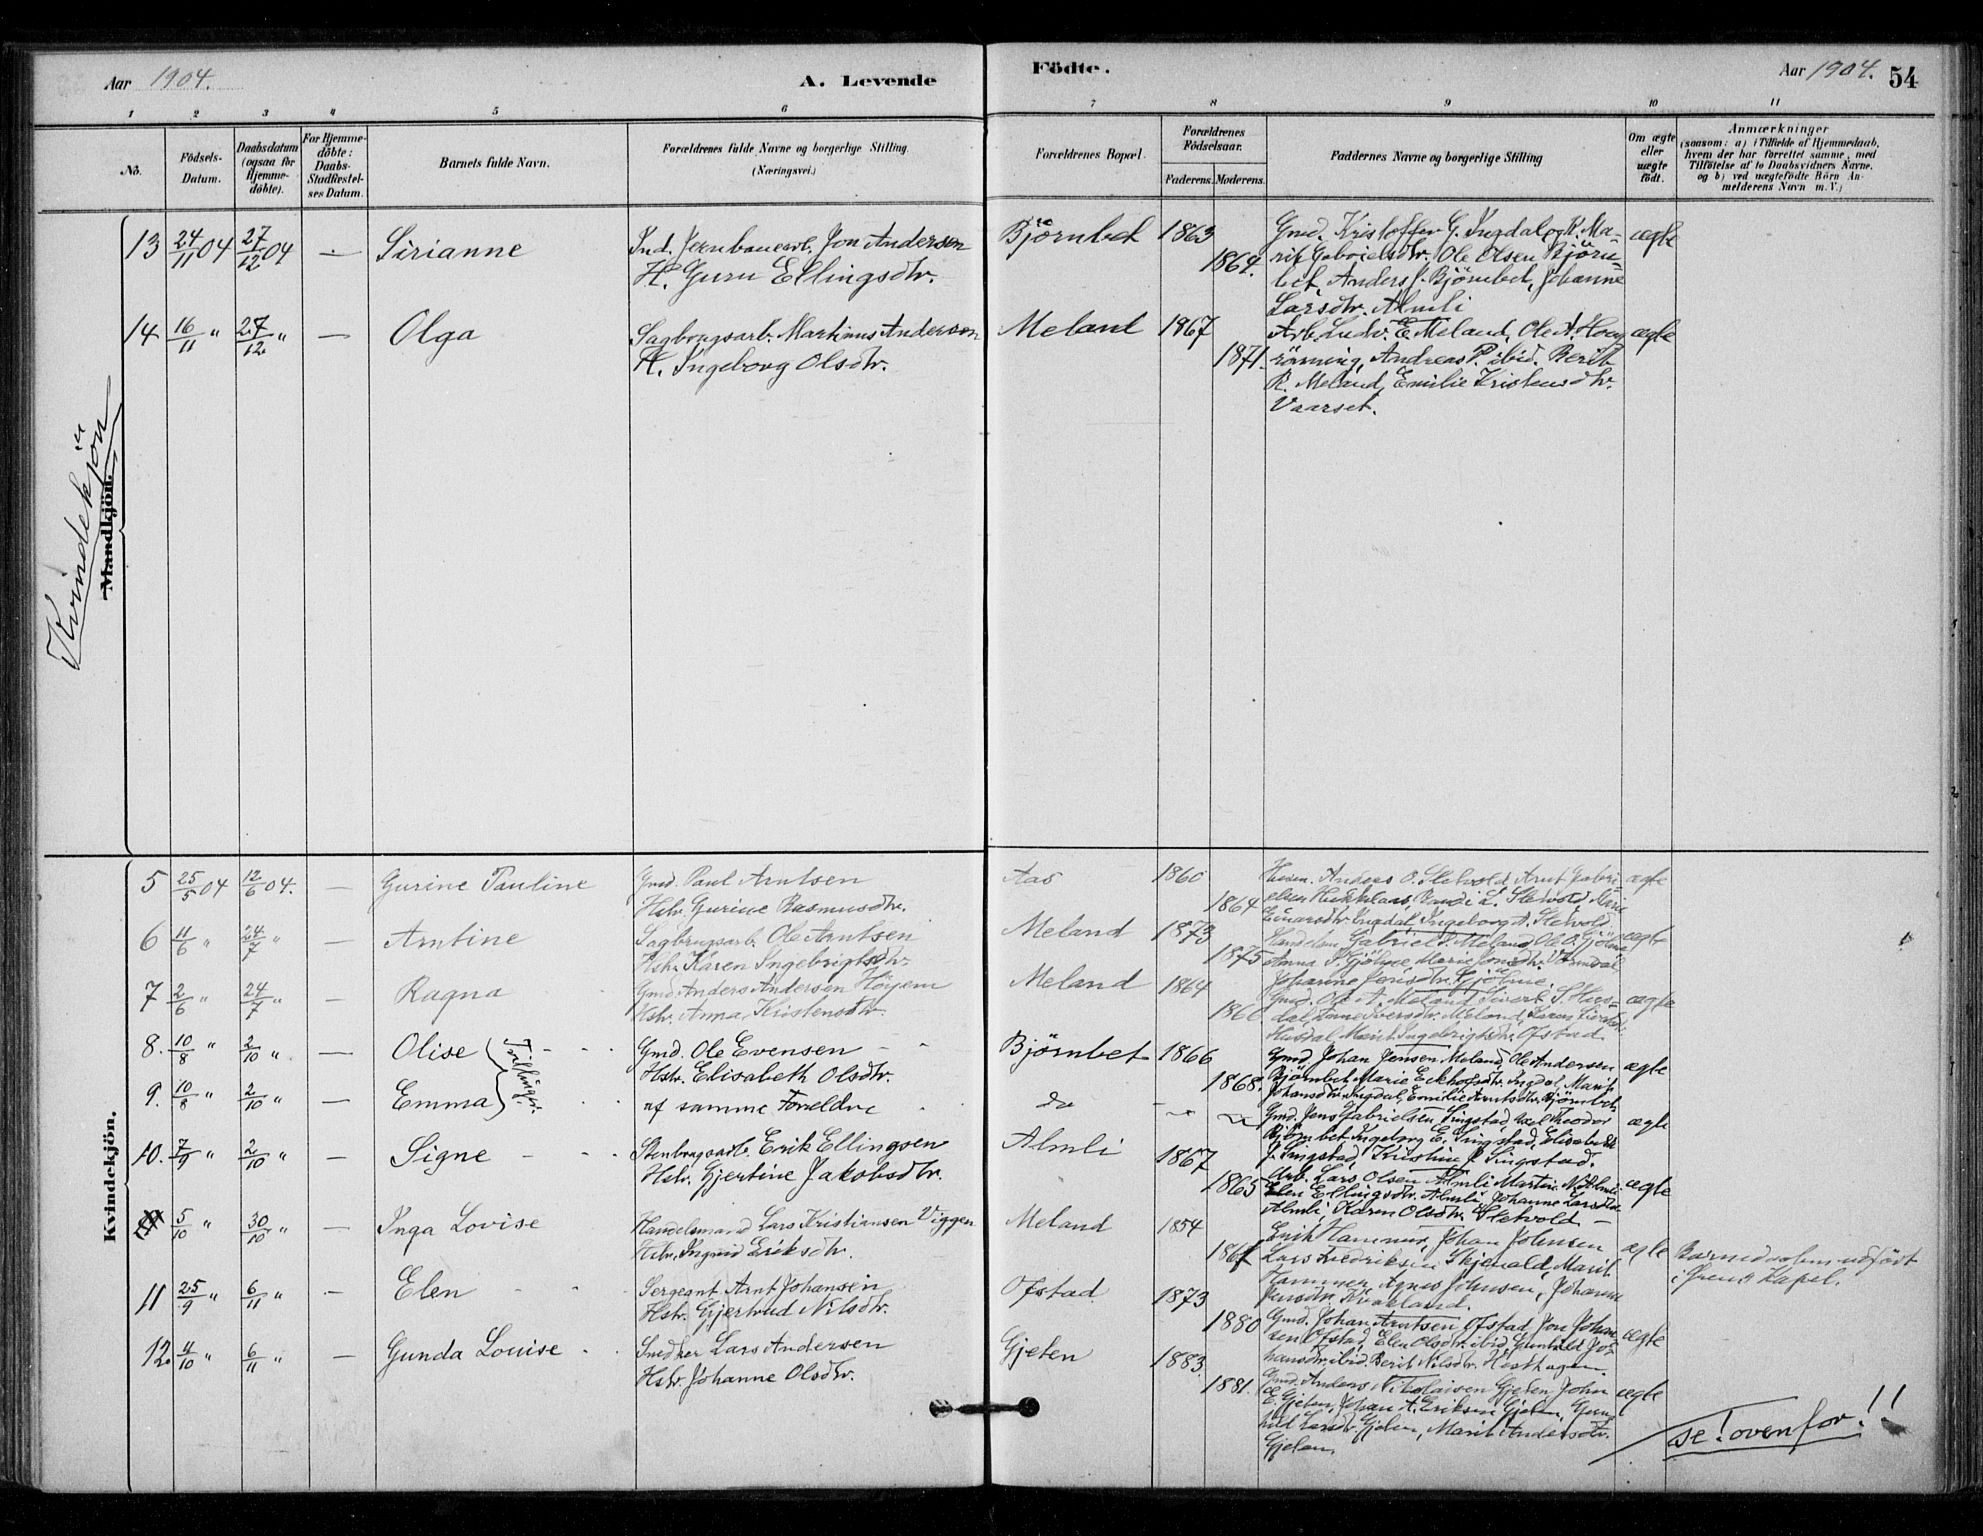 Aar 1904.
A. Levende
Födte.
Aar 1904. 54
1 2 3 4 5 6 7 8 9 10 11
No.
Födsels-
Datum.
Daabsdatum
(ogsaa för
Hjemme-
döbte).
For Hjemme-
döbte:
Daabs-
Stadfæstel-
ses Datum.
Barnets fulde Navn.
Forældrenes fulde Navne og borgerlige Stilling.
(Næringsvei.)
Forældrenes Bopæl.
Forældrenes
Födselsaar.
Faderens. Moderens.
Faddernes Navne og borgerlige Stilling
Om ægte
eller
uægte
födt.
Anmærkninger
(saasom: a) i Tilfælde af Hjemmedaab,
hvem der har forrettet samme, med
Tilföielse af to Daabsvidners Navne,
og b) ved uægtefödte Börn An-
melderens Navn m. V.)
Kvindekjön
Mandkjön.
13 24/11 04 27/12 04 — Sirianne
Ind. Jernbanearb. Jon Andersen
H. Guru Ellingsdtr.
Bjørnbet 1863
1864.
Gmd. Kristoffer G. Ingdal og K. Ma-
rit Gabrielsdtr. Ole Olsen Bjørn-
bet, Anders J. Bjørnbet, Johanne
Larsdtr. Almli
ægte
14 16/11 " 27/12 " — Olga
Sagbrugsarb. Martinus Andersen
H. Ingeborg Olsdtr.
Meland 1867
1871.
Arb. Ludv. E. Meland, Ole A. Houg
rønning, Andreas P. ibid. Berit
R. Meland, Emilie Kristensdtr.
Vaarset.
ægte
Kvindekjön.
5 25/5 04 12/6 04. — Gurine Pauline
Gmd. Paul Arntsen
Hstr. Gurine Rasmusdtr.
Aas 1860
1864
Anders O. Sletvold, Arnt Gabri-
elsen Randi L. Sletvold Marie
Einarsdtr. Ingdal, Ingeborg A. Sletvold
ægte
6 11/6 " 24/7 " — Arntine
Sagbrugsarb. Ole Arntsen
Hstr. Karen Ingebrigtsdtr.
Meland 1873
1875
Handelsm. Gabriel S. Meland, Ole O. Gjölme
Anna S. Gjölme, Marie
Johanne Jensdtr. Gjölme.
ægte
7 2/6 " 24/7 " — Ragna
Gmd. Anders Andersen Höyem
Hstr. Anna Kristensdtr.
Meland 1864
1866
Gmd. Ole A. Meland, Sivert S. Hus-
dal, Anne Iversdtr. Meland,
Husdal, Marit Ingebrigtsdtr. Ofstad.
ægte
8. 10/8 " 2/10 " — Olise
Tvillinger.
Gmd. Ole Evensen
Hstr. Elisabeth Olsdtr.
Bjørnbet 1866
1868.
Gmd. Johan Jensen Meland, Ole Andersen
Bjørnbet, Marie Eckhofsdtr. Ingdal, Marit
Johansdtr. Ingdal, Emilie Arntsdtr. Bjørnbet
ægte
9. 10/8 " 2/10 " — Emma
af samme Foreldre
do
Gmd. Jens Gabrielsen Singstad, Axel Theodor
Bjørnbet, Ingeborg E. Singstad, Elisabeth
J. Singstad, Kristine P. Singstad.
ægte
10. 7/9 " 2/10 " — Signe
Stenbrugsarb. Erik Ellingsen
Hstr. Gjertine Jakobsdtr.
Almli 1867
1865
Arb. Lars Olsen Almli, Martin N. Almli
Elen Ellingsdtr. Almli, Johanne Larsdtr.
Almli, Karen Olsdtr. Sletvold
ægte
5/10 " 30/10 " — Inga Lovise
Handelsmand Lars Kristiansen Viggen
Hstr. Ingrid Eriksdtr.
Meland 1854
1861
Erik Hammer, Johan Johnsen
Lars Fredriksen Skjenald, Marit
Hammer, Agnes Johnsen, Johanna
ægte
Barnedaaben udført
i Kapel.
11 25/9 " 6/11 " — Elen
Sergeant Arnt Johansen
Hstr. Gjertrud Nilsdtr.
Ofstad 1873
1880
Gmd. Johan Arntsen Ofstad, Jon Johan-
sen Ofstad, Elen Olsdtr. ibid, Gunhild Jo-
hansdtr. ibid. Berit Nilsdtr. Hesthagen.
ægte
12. 4/10 " 6/11 " — Gunda Louise
Snedker Lars Andersen
Hstr. Johanne Olsdtr.
Gjeten 1883.
1881.
Gmd. Anders Nikolaisen Gjeten, John
E. Gjeten, Johan A. Eriksen Gjeten, Gun-
hild Larsdtr. Gjeten, Marit Andersdtr.
Gjeten.
ægte
se! ovenfor!!